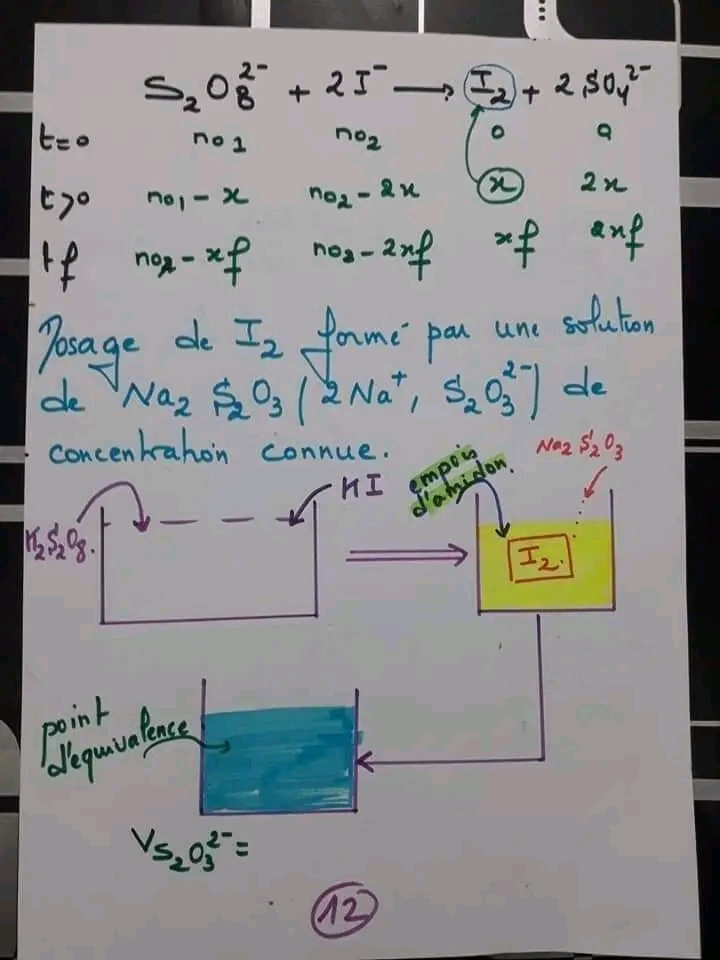 S₂O₈²⁻ + 2I⁻ → I₂ + 2SO₄²⁻
t=0 no1 no₂ 0 0
t>0 no₁ - x no₂ - 2x x 2x
tf no₂ - xf no₃ - 2xf xf 2xf
Dosage de I₂ formé par une solution
de Na₂ S₂O₃ (2Na⁺, S₂O₃²⁻) de
concentration connue.
K₂S₂O₈.
KI
empois
d'amidon.
Na₂ S₂O₃
I₂.
point
d'équivalence
V S₂O₃²⁻ =
12